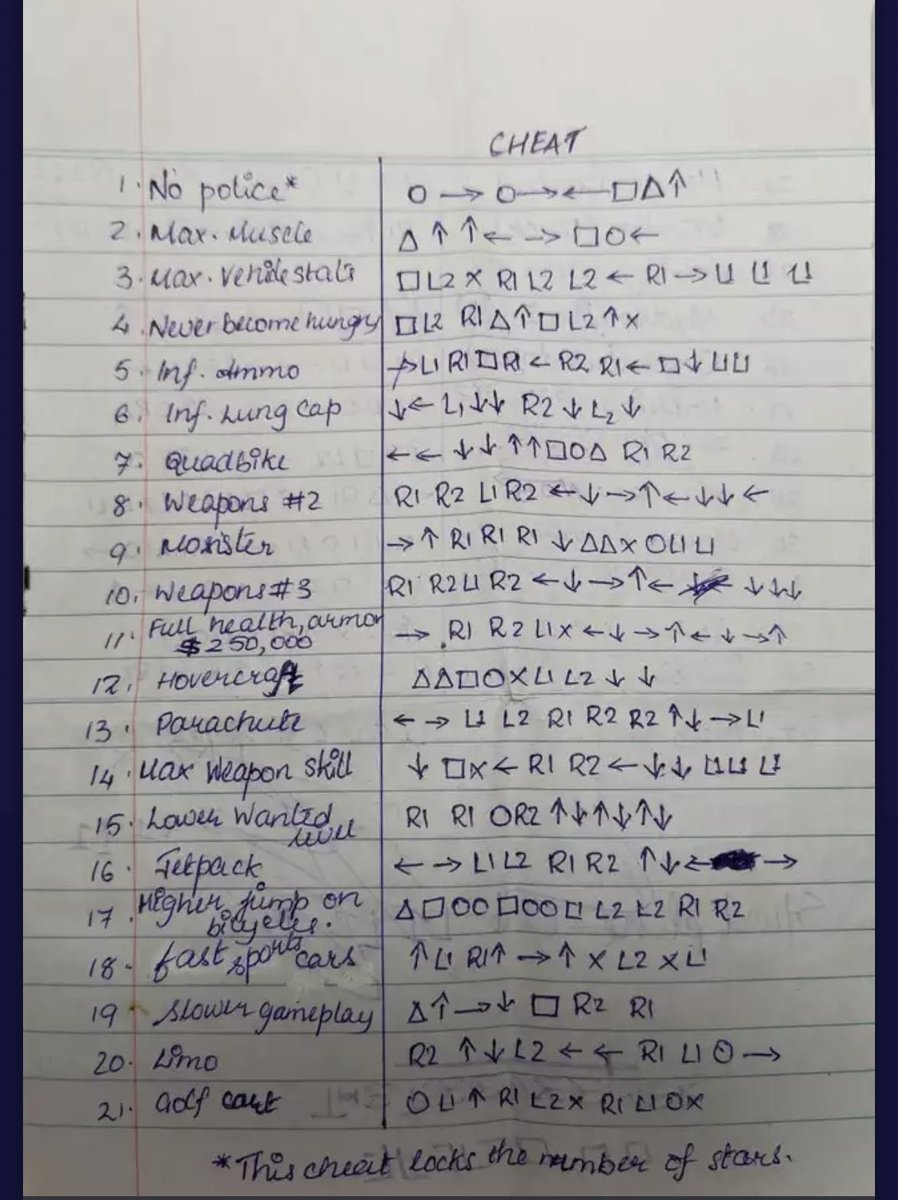 CHEAT
1. No police* O → O → ← □ △ ↑
2. Max. Muscle △ ↑ ↑ ← → □ O ←
3. Max. Vehicle stats □ L2 X R1 L2 L2 ← R1 → L1 L1 L1
4. Never become hungry □ L2 R1 △ ↑ □ L2 ↑ X
5. Inf. Ammo → L1 R1 □ R1 ← R2 R1 ← □ ↓ L1 L1
6. Inf. Lung cap ↓ ← L1 ↓ ↓ R2 ↓ L2 ↓
7. Quadbike ← ← ↓ ↓ ↑ ↑ □ O △ R1 R2
8. Weapons #2 R1 R2 L1 R2 ← ↓ → ↑ ← ↓ ↓ ←
9. Monster → ↑ R1 R1 R1 ↓ △ △ X O L1 L1
10. Weapons #3 R1 R2 L1 R2 ← ↓ → ↑ ← ↓ ↓ ↓
11. Full health, armor → R1 R2 L1 X ← ↓ → ↑ ← ↓ → ↑
$ 250,000
12. Hovercraft △ △ □ O X L1 L2 ↓ ↓
13. Parachute ← → L1 L2 R1 R2 R2 ↑ ↓ → L1
14. Max Weapon skill ↓ □ X ← R1 R2 ← ↓ ↓ L1 L1 L1
15. Lower Wanted R1 R1 O R2 ↑ ↓ ↑ ↓ ↑ ↓
level
16. Jetpack ← → L1 L2 R1 R2 ↑ ↓ ← →
17. Higher jump on △ □ O O □ O O □ L2 L2 R1 R2
bicycles.
18. fast sports cars ↑ L1 R1 ↑ → ↑ X L2 X L1
19. Slower gameplay △ ↑ → ↓ □ R2 R1
20. Limo R2 ↑ ↓ L2 ← ← R1 L1 O →
21. Golf cart O L1 ↑ R1 L2 X R1 L1 O X
*This cheat locks the number of stars.